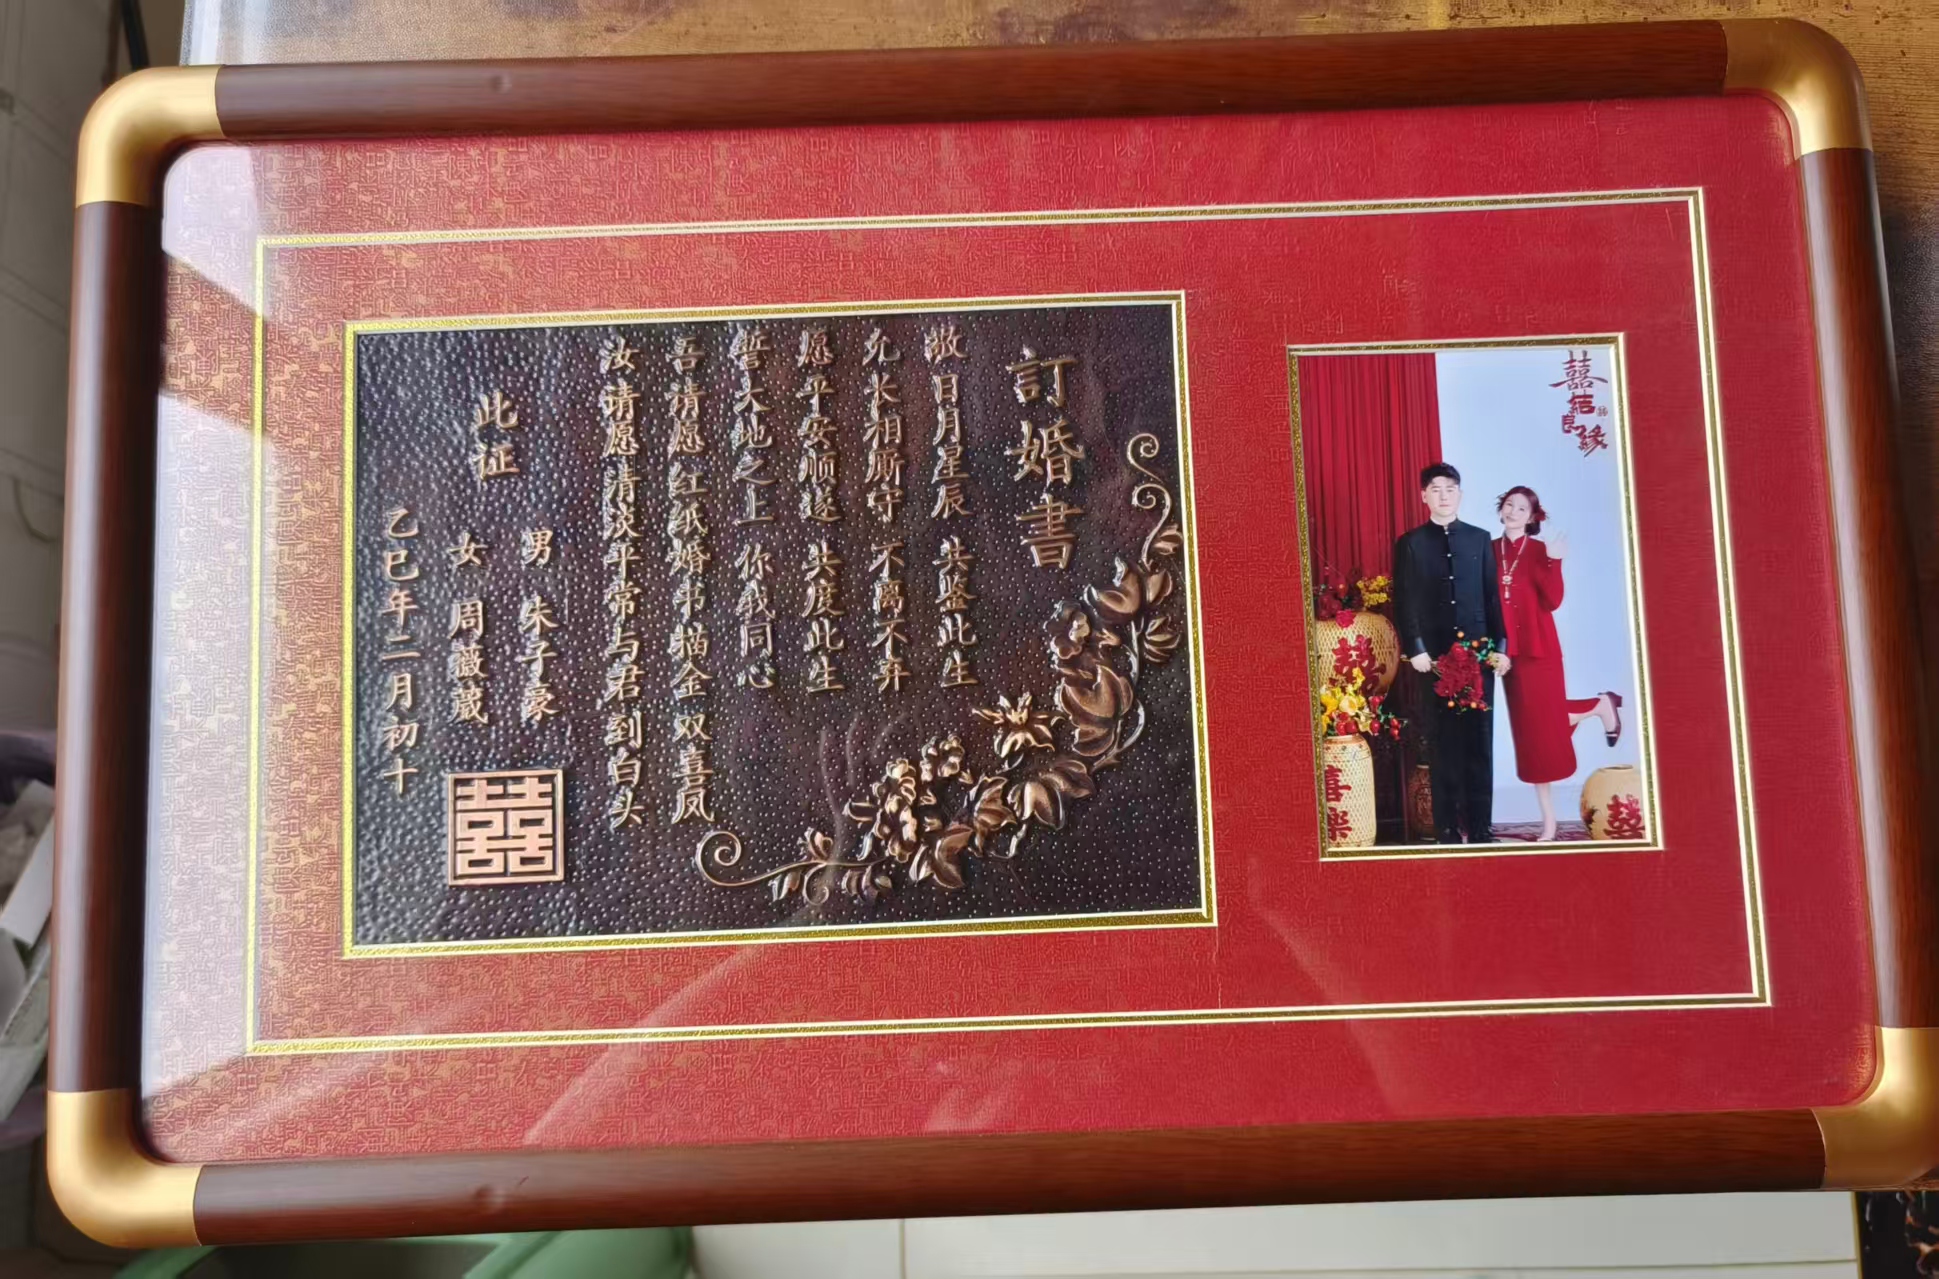 訂婚書
敬日月星辰 共鉴此生
允长相厮守 不离不弃
愿平安顺遂 共度此生
誓天地之上 你我同心
吾情愿红纸婚书描金双喜凤
汝请愿清淡平常与君到白头
此证
男 朱子豪
女 周薇葳
乙巳年二月初十
囍
囍
結
良
緣
囍
喜
樂
囍